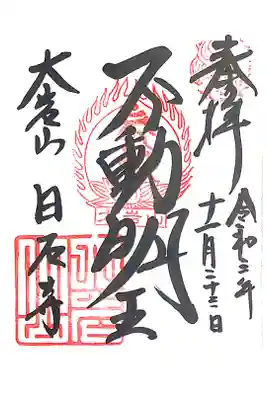 奉拝
令和二年
十一月二十三日
不動明王
大岩山
日石寺